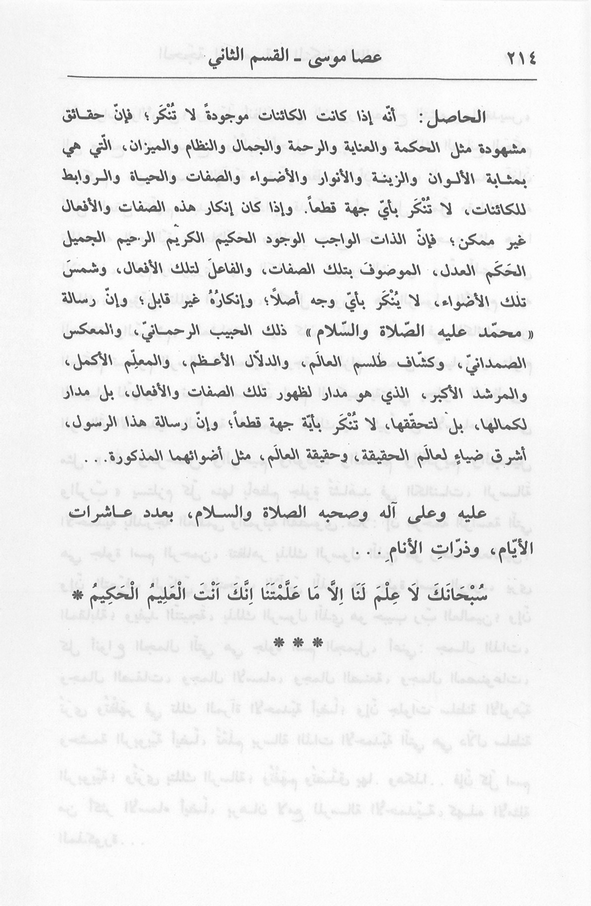 ٢١٤
عصا موسى ـ القسم الثاني
الحاصل: أنّه إذا كانت الكائنات موجودةً لا تُنْكَر؛ فإنّ حقائق
مشهودة مثل الحكمة والعناية والرحمة والجمال والنظام والميزان، الّتي هي
بمثابة الألـوان والزينـة والأنوار والأضـواء والصفات والحياة والـروابط
للكائنات، لا تُنْكَر بأيّ جهة قطعاً. وإذا كان إنكار هذه الصفات والأفعال
غير ممكن؛ فإنّ الذات الواجب الوجود الحكيم الكريم الرحيم الجميل
الحَكَم العدل، الموصوفَ بتلك الصفات، والفاعلَ لتلك الأفعال، وشمسَ
تلك الأضواء، لا يُنْكَر بأيّ وجه أصلاً؛ وإنكارُهُ غير قابل؛ وإنّ رسالة
«محمّد عليه الصّلاة والسّلام» ذلك الحبيب الرحمـانيّ، والمعكس
الصمدانيّ، وكشّاف طلسم العالَم، والدلّال الأعظـم، والمعلِّم الأكمل،
والمرشد الأكبر، الذي هو مدار لظهور تلك الصفات والأفعال، بل مدار
لكمالها، بل لتحقّقها، لا تُنْكَر بأيّة جهة قطعاً؛ وإنّ رسالة هذا الرسول،
أشرق ضياءٍ لعالَم الحقيقة، وحقيقة العالَم، مثل أضوائهما المذكورة...
عليه وعلى آله وصحبه الصلاة والسـلام، بعدد عـاشرات
الأيّام، وذرّاتِ الأنامِ...
سُبْحَانَكَ لَا عِلْمَ لَنَا اِلَّا مَا عَلَّمْتَنَا اِنَّكَ اَنْتَ الْعَلِيمُ الْحَكِيمُ *
* * *